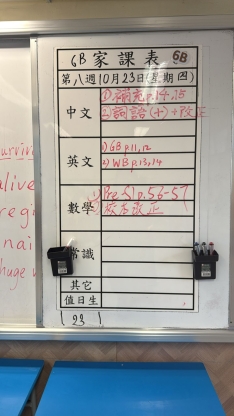 6B家課表 6B
第八週10月23日(星期四)
中文
①補充p.14,15
②詞語(十)+改正
英文
①GB p.11,12
②WB p.13,14
數學
p.56-57
改正
常識
其它
值日生
(23)
alive